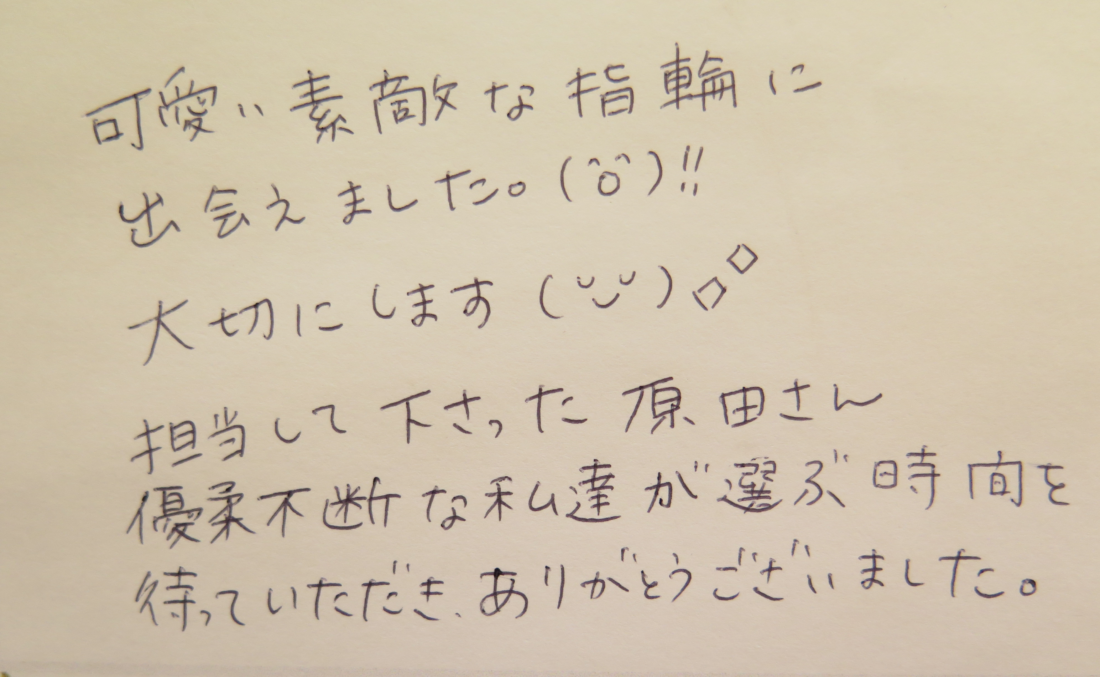 可愛い素敵な指輪に
出会えました。(^o^)!!
大切にします(˘◡˘)◇◇
担当して下さった原田さん
優柔不断な私達が選ぶ時間を
待っていただき、ありがとうございました。